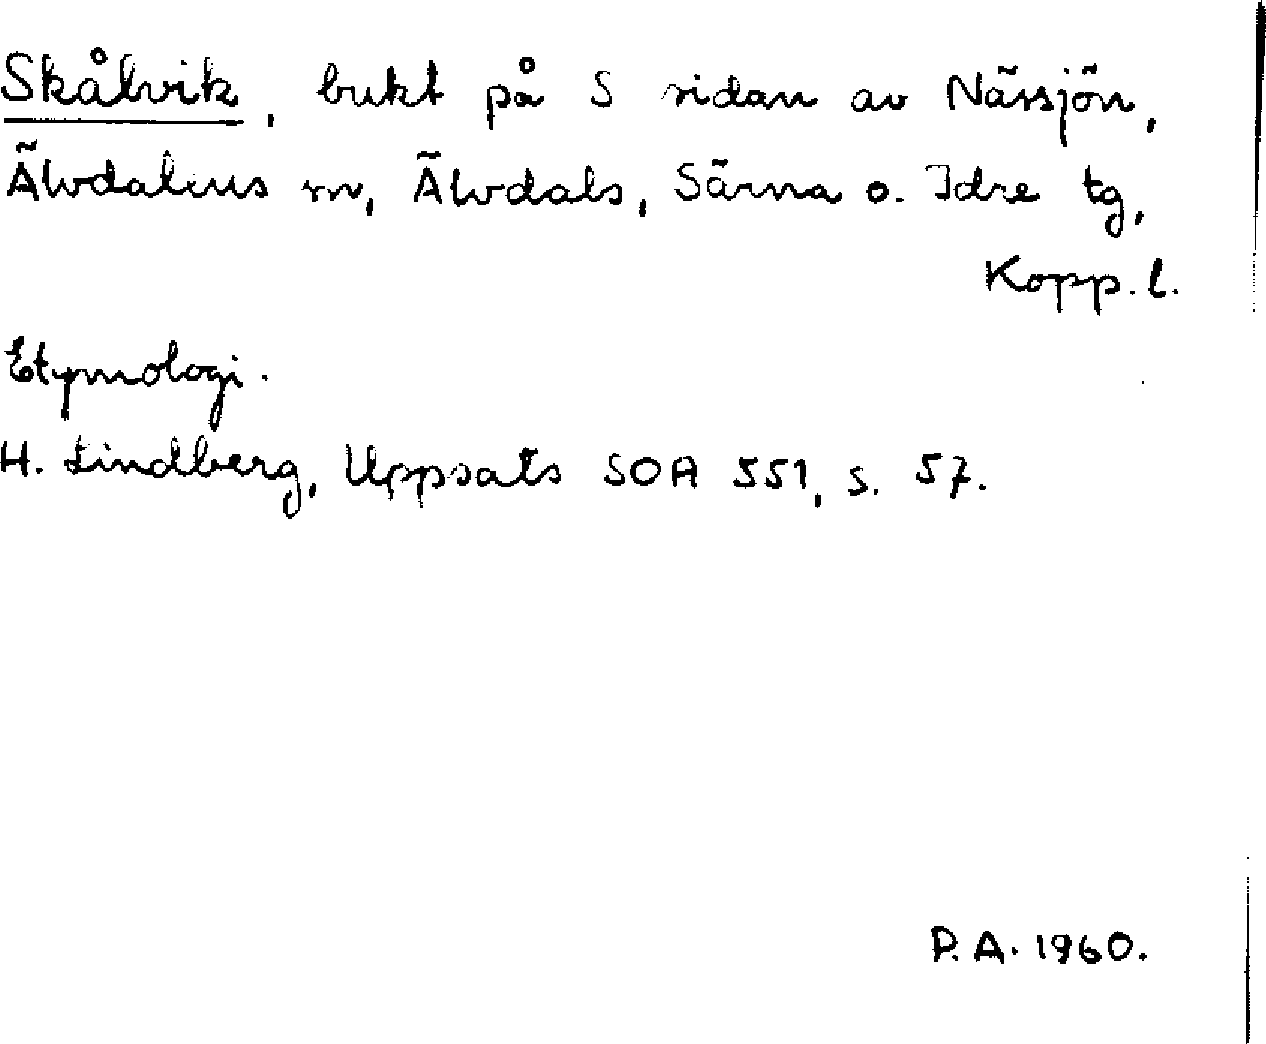 Skålvik, bukt på S sidan av Nässjön,
Älvdalens sn, Älvdals, Särna o. Idre tg,
Kopp. l.
Etymologi.
H. Lindberg, Uppsats SOA 551, s. 57.
P. A. 1960.